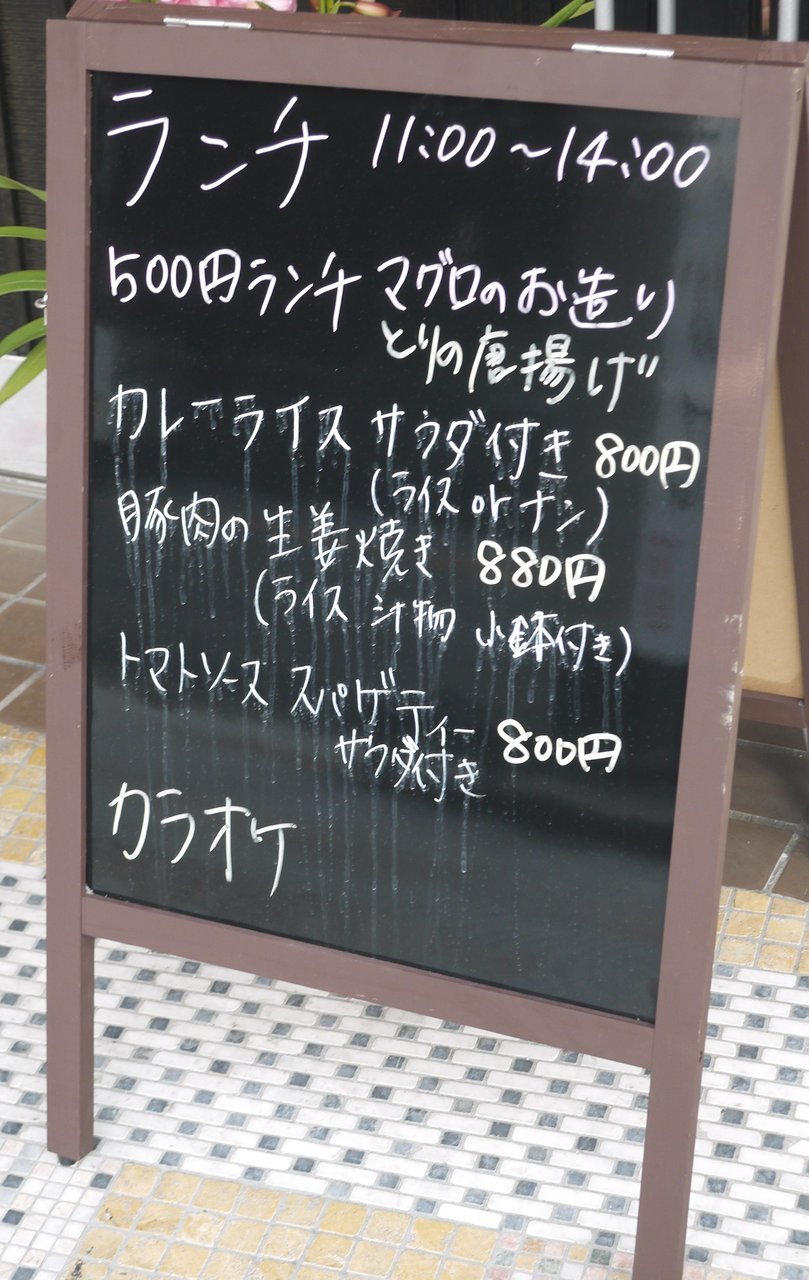 ランチ 11:00~14:00
500円ランチ マグロのお造り
とりの唐揚げ
カレーライス サラダ付き 800円
(ライス or ナン)
豚肉の生姜焼き 880円
(ライス 汁物 小鉢付き)
トマトソース スパゲティー
サラダ付き 800円
カラオケ